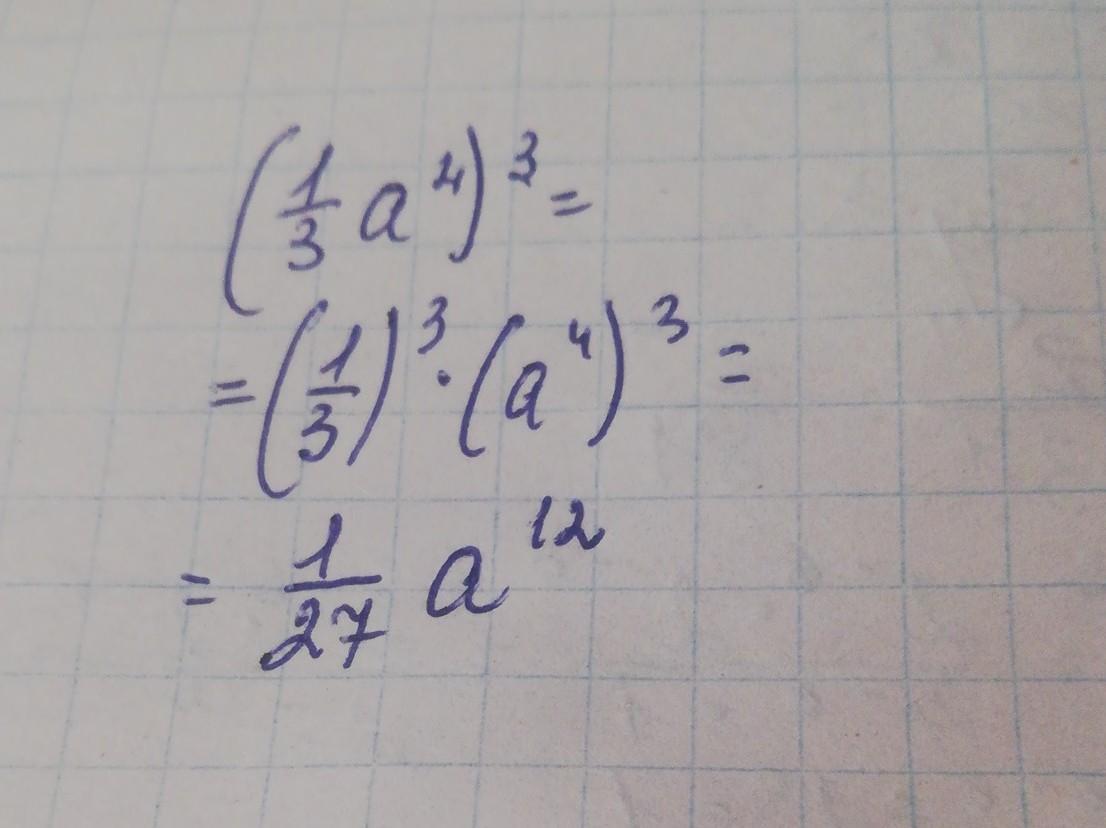 (1/3 a⁴)³ =
= (1/3)³ · (a⁴)³ =
= 1/27 a¹²